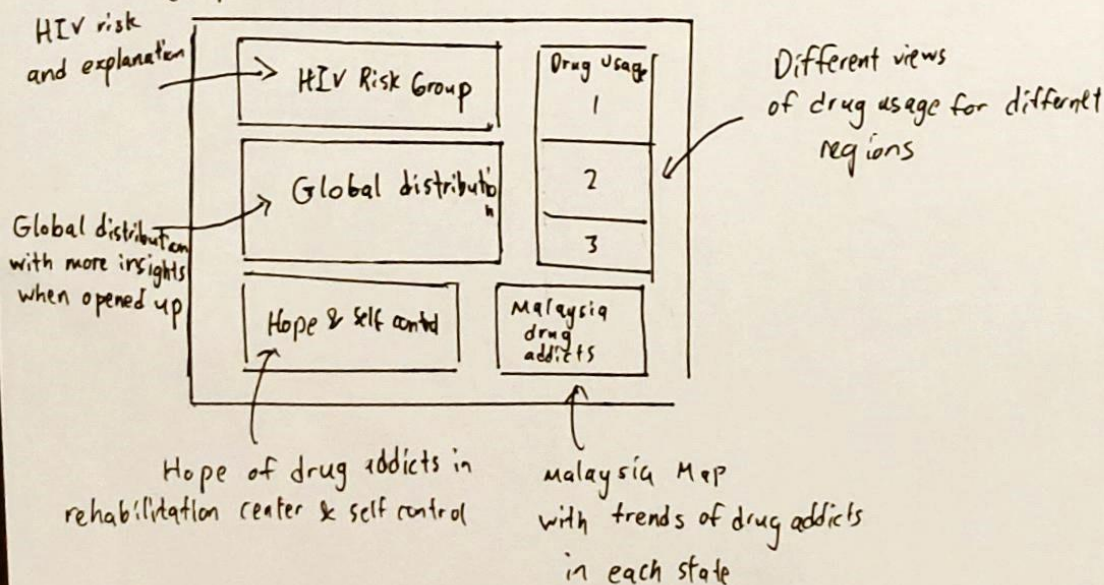 HIV risk
and explanation
HIV Risk Group
Drug Usage
1
2
3
Different views
of drug usage for differnet
regions
Global distribution
Global distribution
with more insights
when opened up
Hope & self control
Malaysia
drug
addicts
Hope of drug addicts in
rehabilitation center & self control
Malaysia Map
with trends of drug addicts
in each state